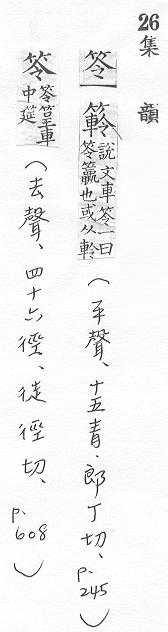 26 集韻
笭 䉹 說文車笭一曰笭籯也或从軨（平聲、十五青．郎丁切、p.245）
笭 笭䇦車中筵（去聲、四十六徑、徒徑切、p.608）